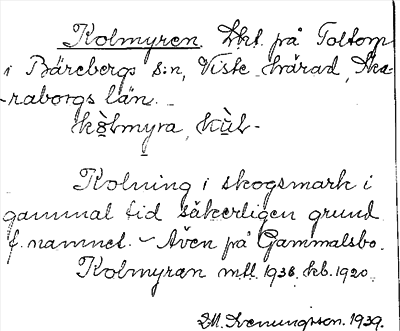 Kolmyren. Skt. på Toltorp
i Bärebergs s:n, Viste härad, Ska-
-raborgs län.
kòlmyra, kùl-
Kolning i skogsmark i
gammal tid säkerligen grund
f. namnet. – Även på Gammalsbo.
Kolmyran mtl. 1938. kb. 1920.
E.M. Svenungsson. 1939.